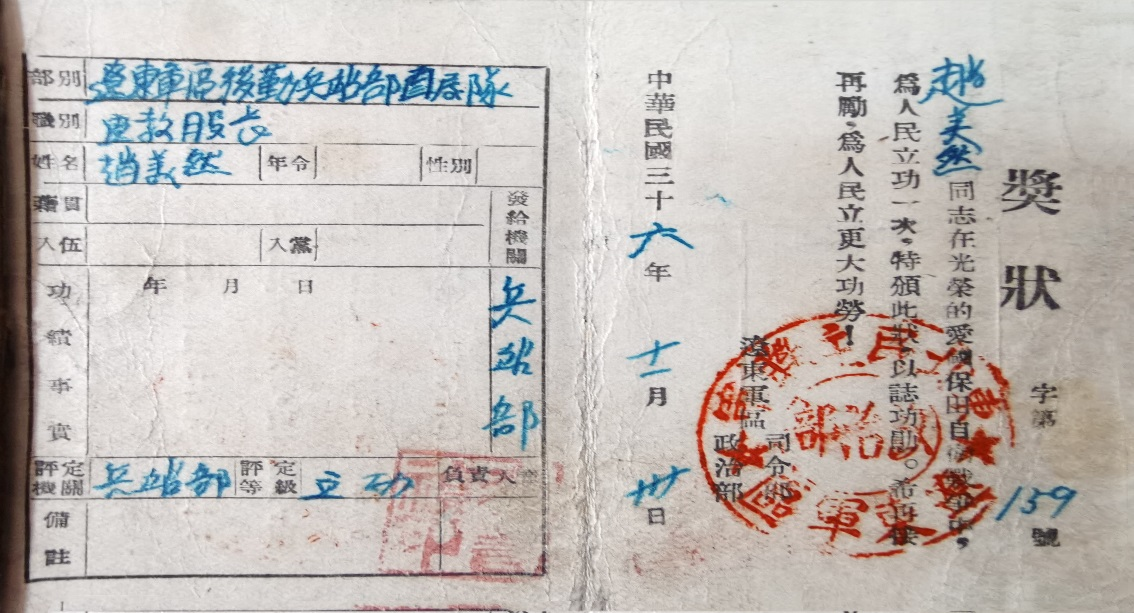 獎狀
字第159號
趙美然同志在光榮的愛國保田自衛戰爭中，
為人民立功一次，特頒此狀，以誌功勛。希再接
再勵，為人民立更大功勞！
遼東軍區
司令部
政治部
中華民國三十六年十一月卅日
部別 遼東軍區後勤兵站部 隊
職別 股長
姓名 趙美然 年令 性別
籍貫
入伍 入黨
發給機關 兵站部
功績事實 年 月 日
評定機關 兵站部 評定等級 立功 負責人
備註